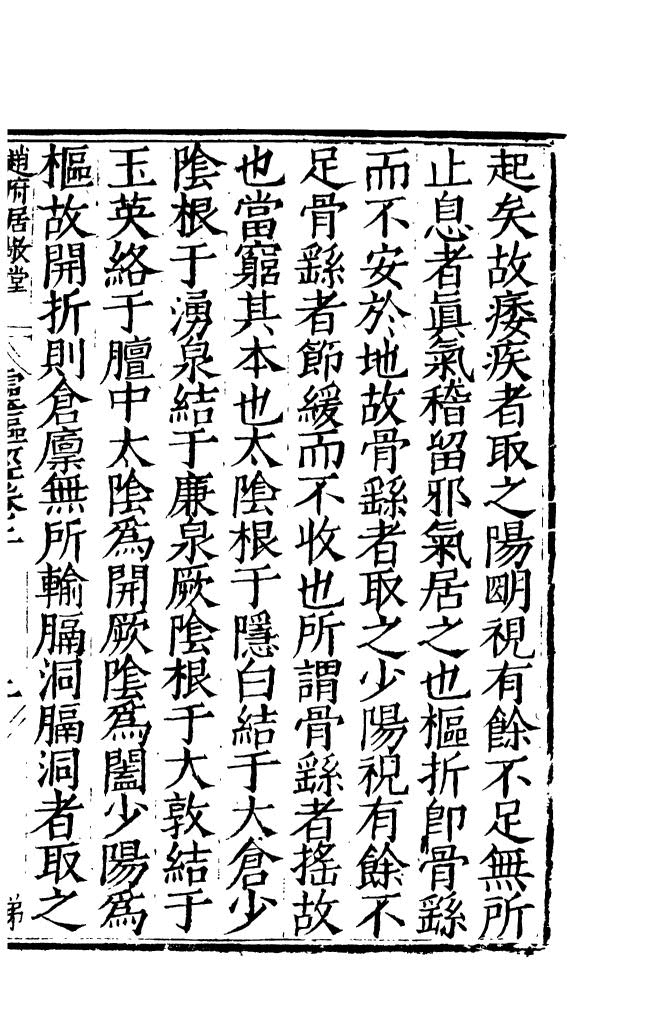 起矣故痿疾者取之陽朙視有餘不足無所
止息者眞氣稽留邪氣居之也樞折卽骨繇
而不安於地故骨繇者取之少陽視有餘不
足骨繇者節緩而不收也所謂骨繇者搖故
也當窮其本也太陰根于隱白結于大倉少
陰根于湧泉結于廉泉厥陰根于大敦結于
玉英絡于膻中太陰爲開厥陰爲闔少陽爲
樞故開折則倉廩無所輸膈洞膈洞者取之
趙府居敬堂